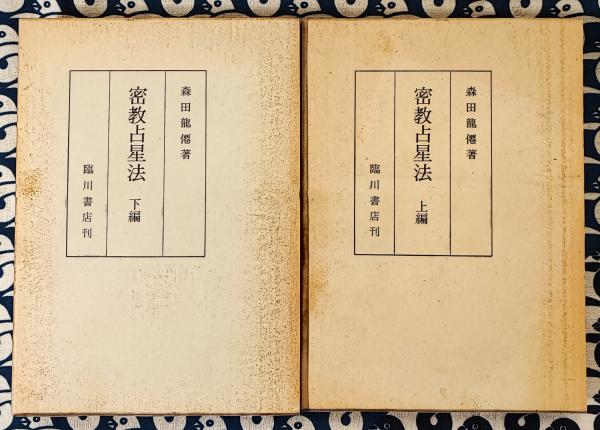 森田龍僊著
密教占星法 上編
臨川書店刊
森田龍僊著
密教占星法 下編
臨川書店刊